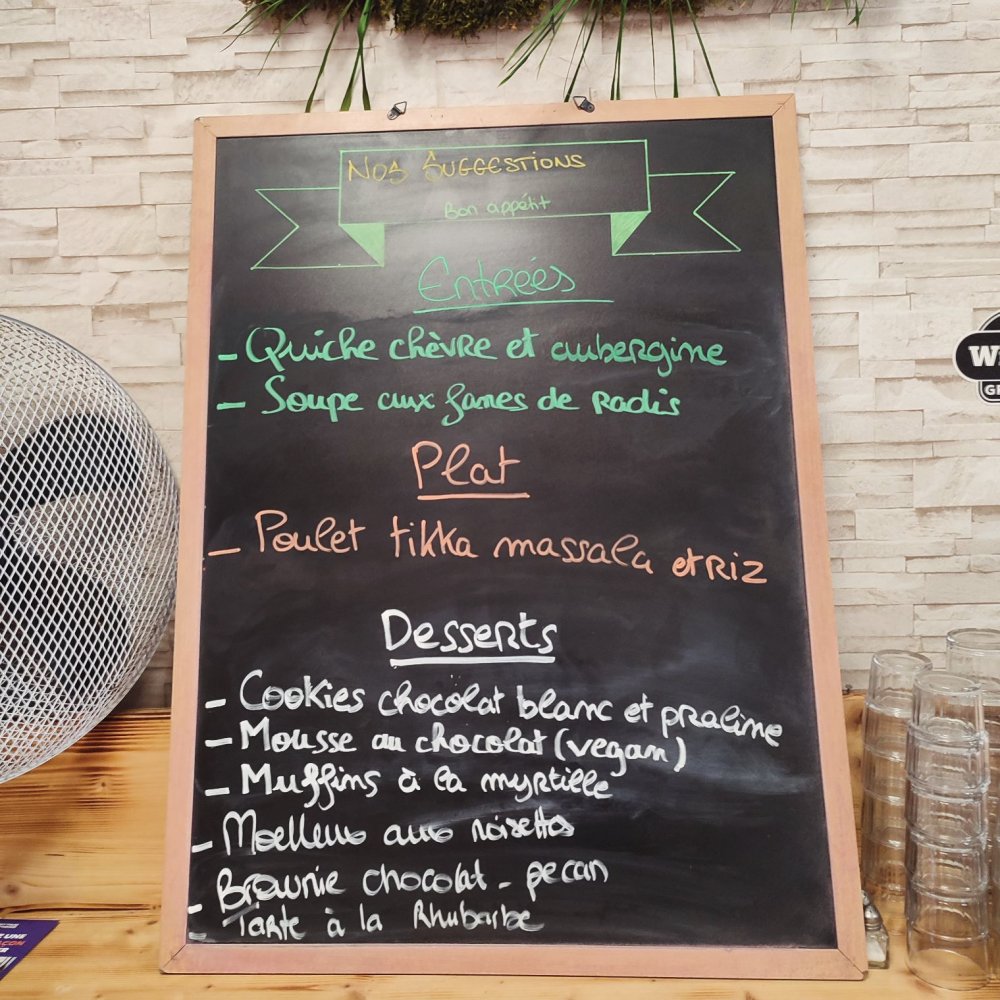 Nos Suggestions
Bon appétit
Entrées
- Quiche chèvre et aubergine
- Soupe aux fanes de Radis
Plat
- Poulet tikka massala et RIZ
Desserts
- Cookies chocolat blanc et praline
- Mousse au chocolat (vegan)
- Muffins à la myrtille
- Moelleux aux noisettes
- Brownie chocolat - pecan
- Tarte à la Rhubarbe